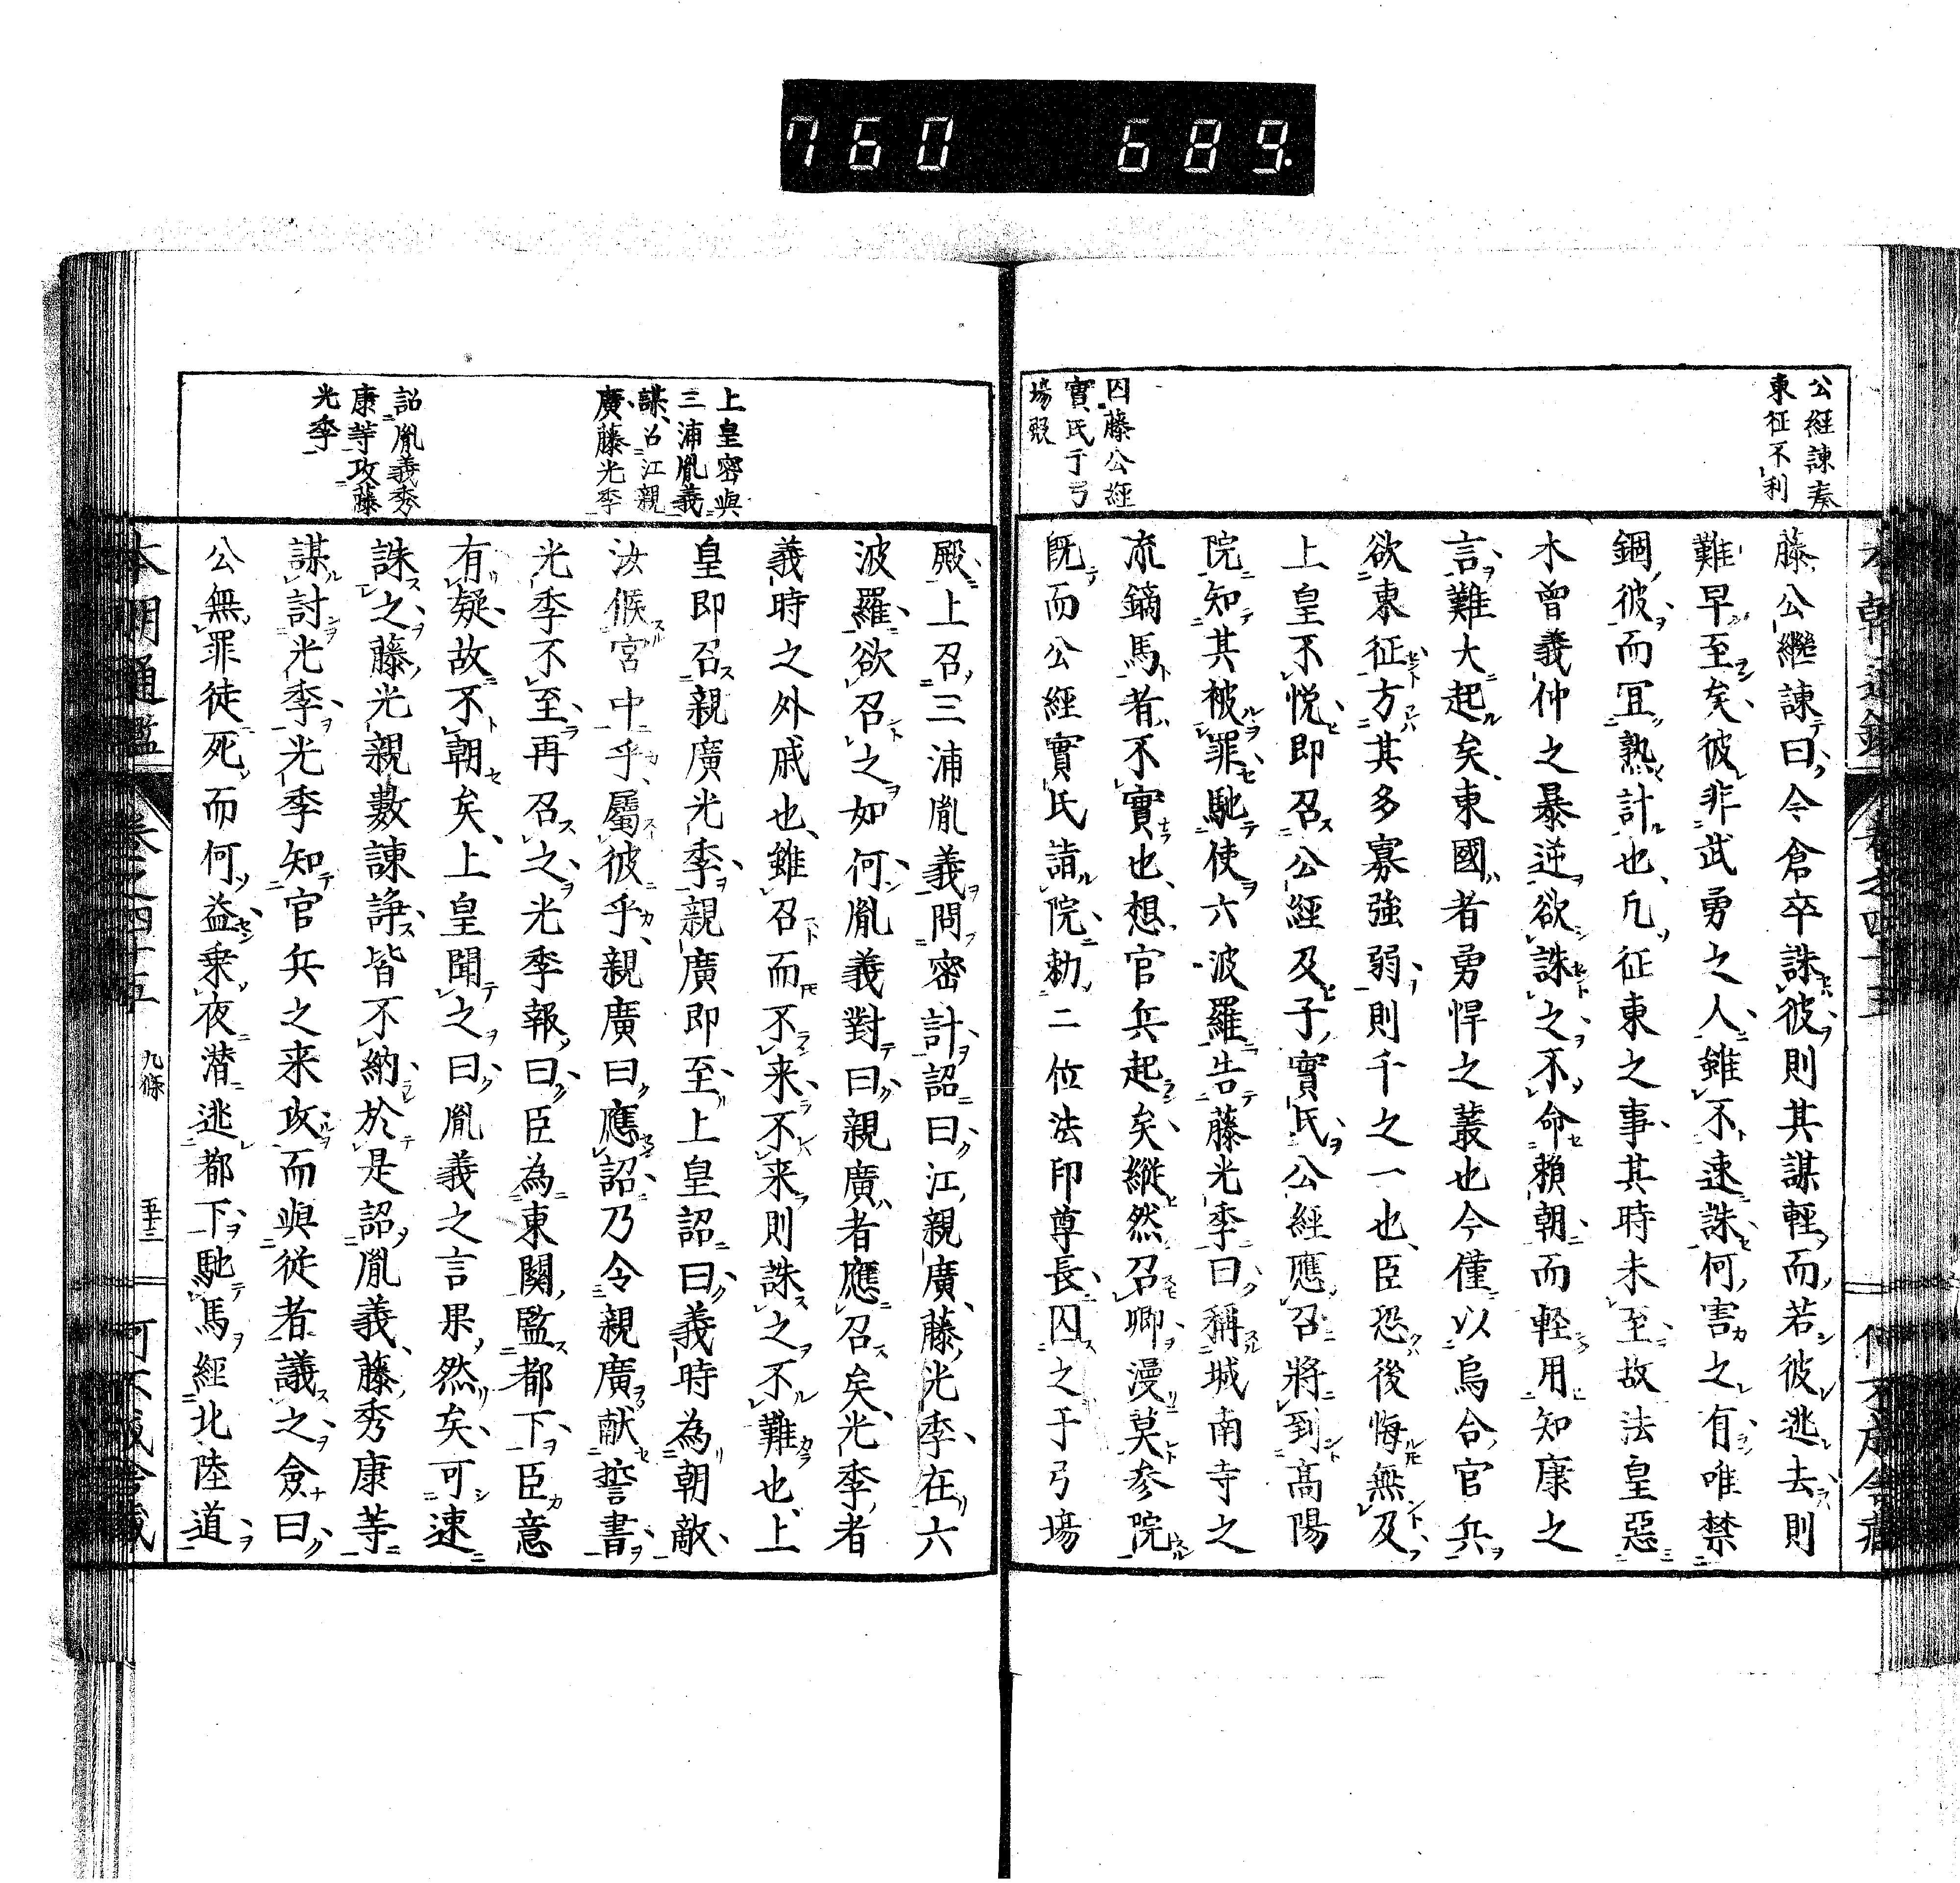 760 689.
公經諫奏
東征不利
囚藤公經
實氏于弓
場殿
藤公繼諫曰今倉卒誅彼則其謀輕而若彼逃去則
難早至矣彼非武勇之人雖不速誅何害之有唯禁
錮彼而冝熟計也凡征東之事其時未至故法皇惡
木曾義仲之暴逆欲誅之不命賴朝而輕用知康之
言難大起矣東國者勇悍之叢也今僅以烏合官兵
欲東征方其多寡強弱則千之一也臣恐後悔無及
上皇不悦即召公經及子實氏公經應召將到高陽
院知其被罪馳使六波羅告藤光季曰稱城南寺之
流鏑馬者不實也想官兵起矣縱然召卿漫莫参院
既而公經實氏詣院勅二位法印尊長囚之于弓場
上皇密與
三浦胤義
謀召江親
廣藤光季
詔胤義秀
康等攻藤
光季
殿上召三浦胤義問密計詔曰江親廣藤光季在六
波羅欲召之如何胤義對曰親廣者應召矣光季者
義時之外戚也雖召而不来不来則誅之不難也上
皇即召親廣光季親廣即至上皇詔曰義時為朝敵
汝候宮中乎屬彼乎親廣曰應詔乃令親廣献誓書
光季不至再召之光季報曰臣為東關監都下臣意
有疑故不朝矣上皇聞之曰胤義之言果然矣可速
誅之藤光親數諫諍皆不納於是詔胤義藤秀康等
謀討光季光季知官兵之来攻而與從者議之僉曰
公無罪徒死而何益乗夜潜逃都下馳馬經北陸道
本朝通鑑 卷之四十五 九條 五十三